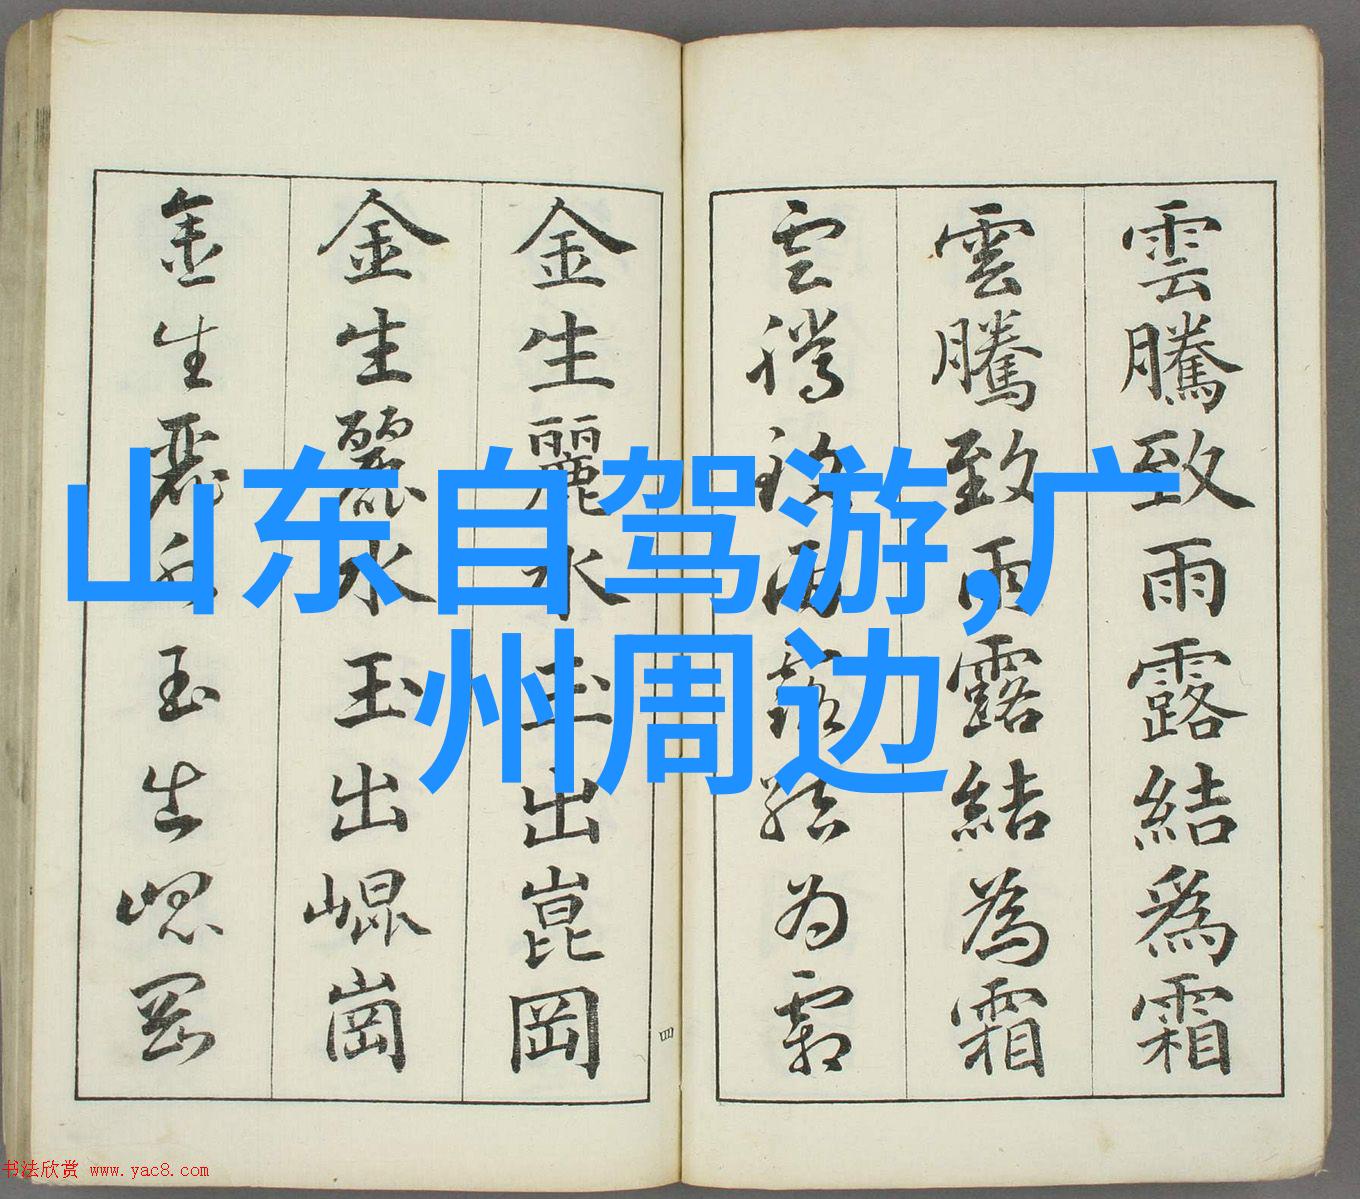 雲騰致雨露結爲霜
雲騰致雨露結為霜
雲騰致雨露結为霜
金生麗水玉出崑岡
金生麗水玉出崐崗
金生麗水玉出崐岡
四
山东自驾游,广
州周边
书法欣赏 www.yac8.com